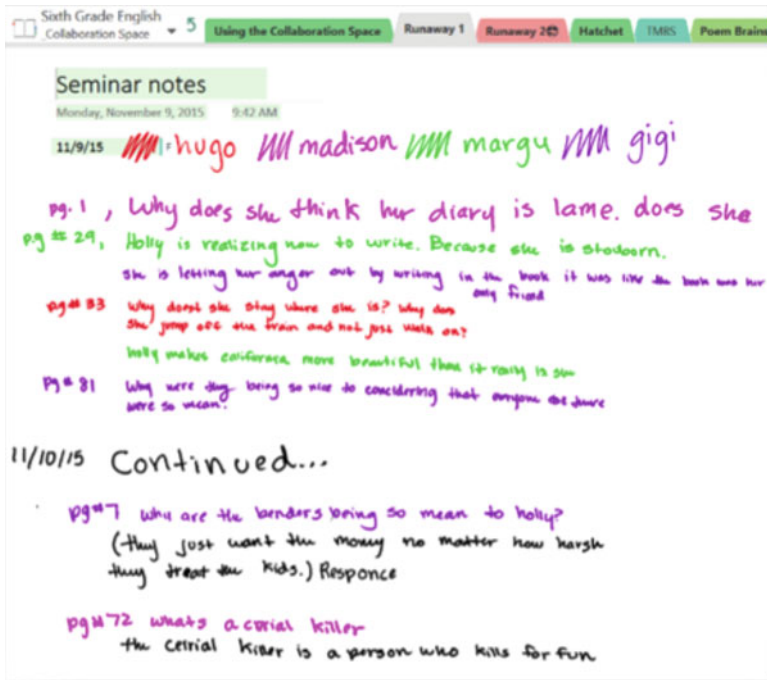 Sixth Grade English
Collaboration Space
5
Using the Collaboration Space
Runaway 1
Runaway 2
Hatchet
TMRS
Poem Brains
Seminar notes
Monday, November 9, 2015 9:42 AM
11/9/15 = hugo madison margu gigi
pg. 1, Why does she think her diary is lame. does she
p.g # 29, Holly is realizing how to write. Because she is
she is letting her anger out by writing in the book it was like the book was her
only friend
pg# 33 Why doesnt she stay where she is? Why does
she jump off the train and not just walk on?
holly makes more beautiful than it really is
pg # 81 Why were they being so nice to concidering that
were so mean?
11/10/15 Continued...
pg#7 why are the benders being so mean to holly?
(they just want the money no matter how harsh
they treat the kids.) Responce
pg#72 whats a cerial killer
the killer is a person who kills for fun